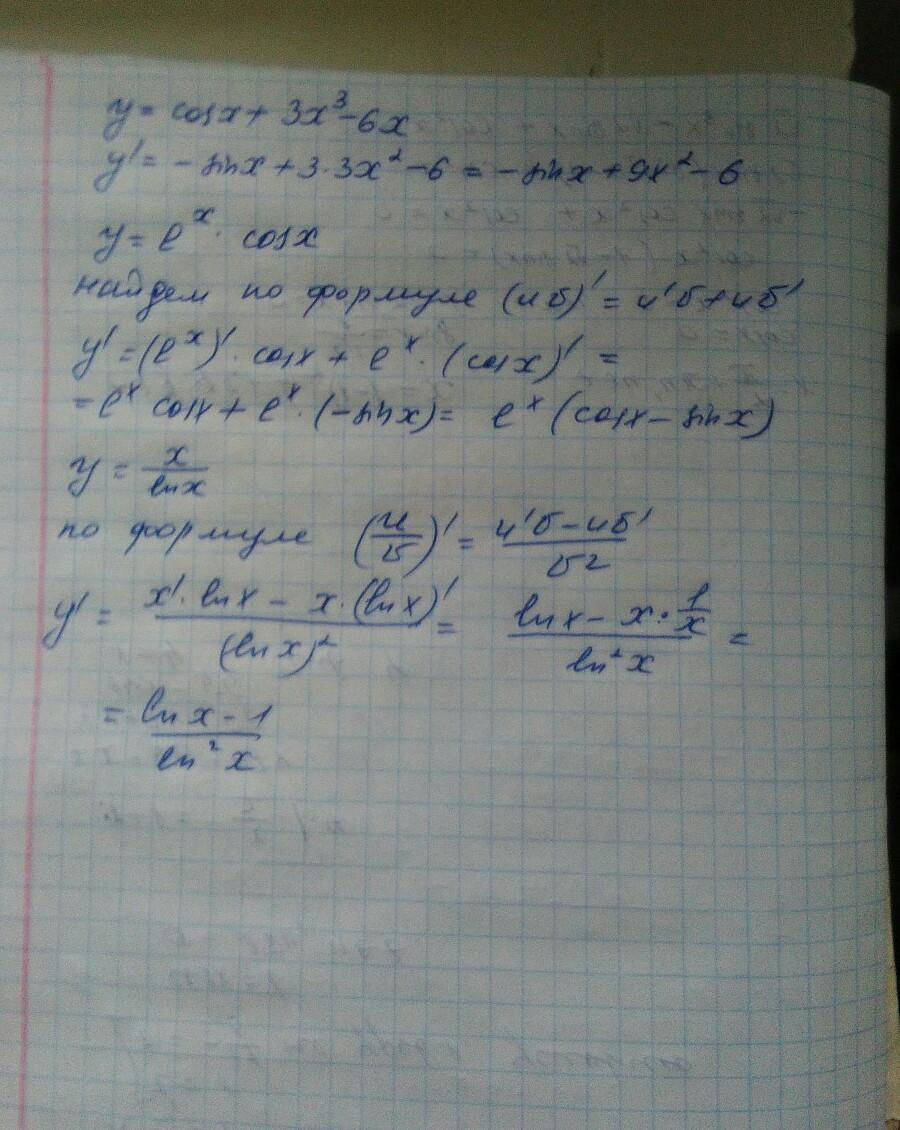 y = cosx + 3x³ - 6x
y' = - sinx + 3·3x² - 6 = - sinx + 9x² - 6
y = e^x · cosx
найдем по формуле (uv)' = u'v + uv'
y' = (e^x)' · cosx + e^x · (cosx)' =
= e^x cosx + e^x · (-sinx) = e^x (cosx - sinx)
y = x/lnx
по формуле (u/v)' = (u'v - uv')/v²
y' = (x' · lnx - x · (lnx)')/(lnx)² = (lnx - x · 1/x)/ln²x =
= (lnx - 1)/ln²x